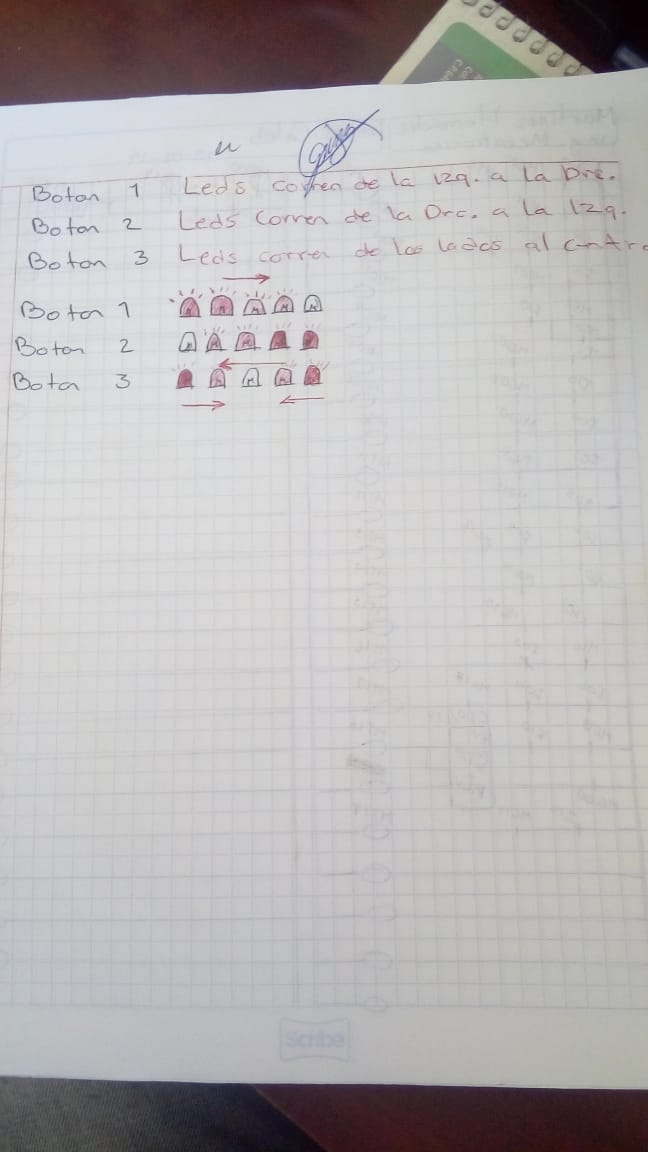 Boton 1 Leds corren de la Izq. a La Drc.
Boton 2 Leds Corren de la Drc. a la Izq.
Boton 3 Leds corren de los lados al centro
Boton 1
Boton 2
Boton 3
Scribe